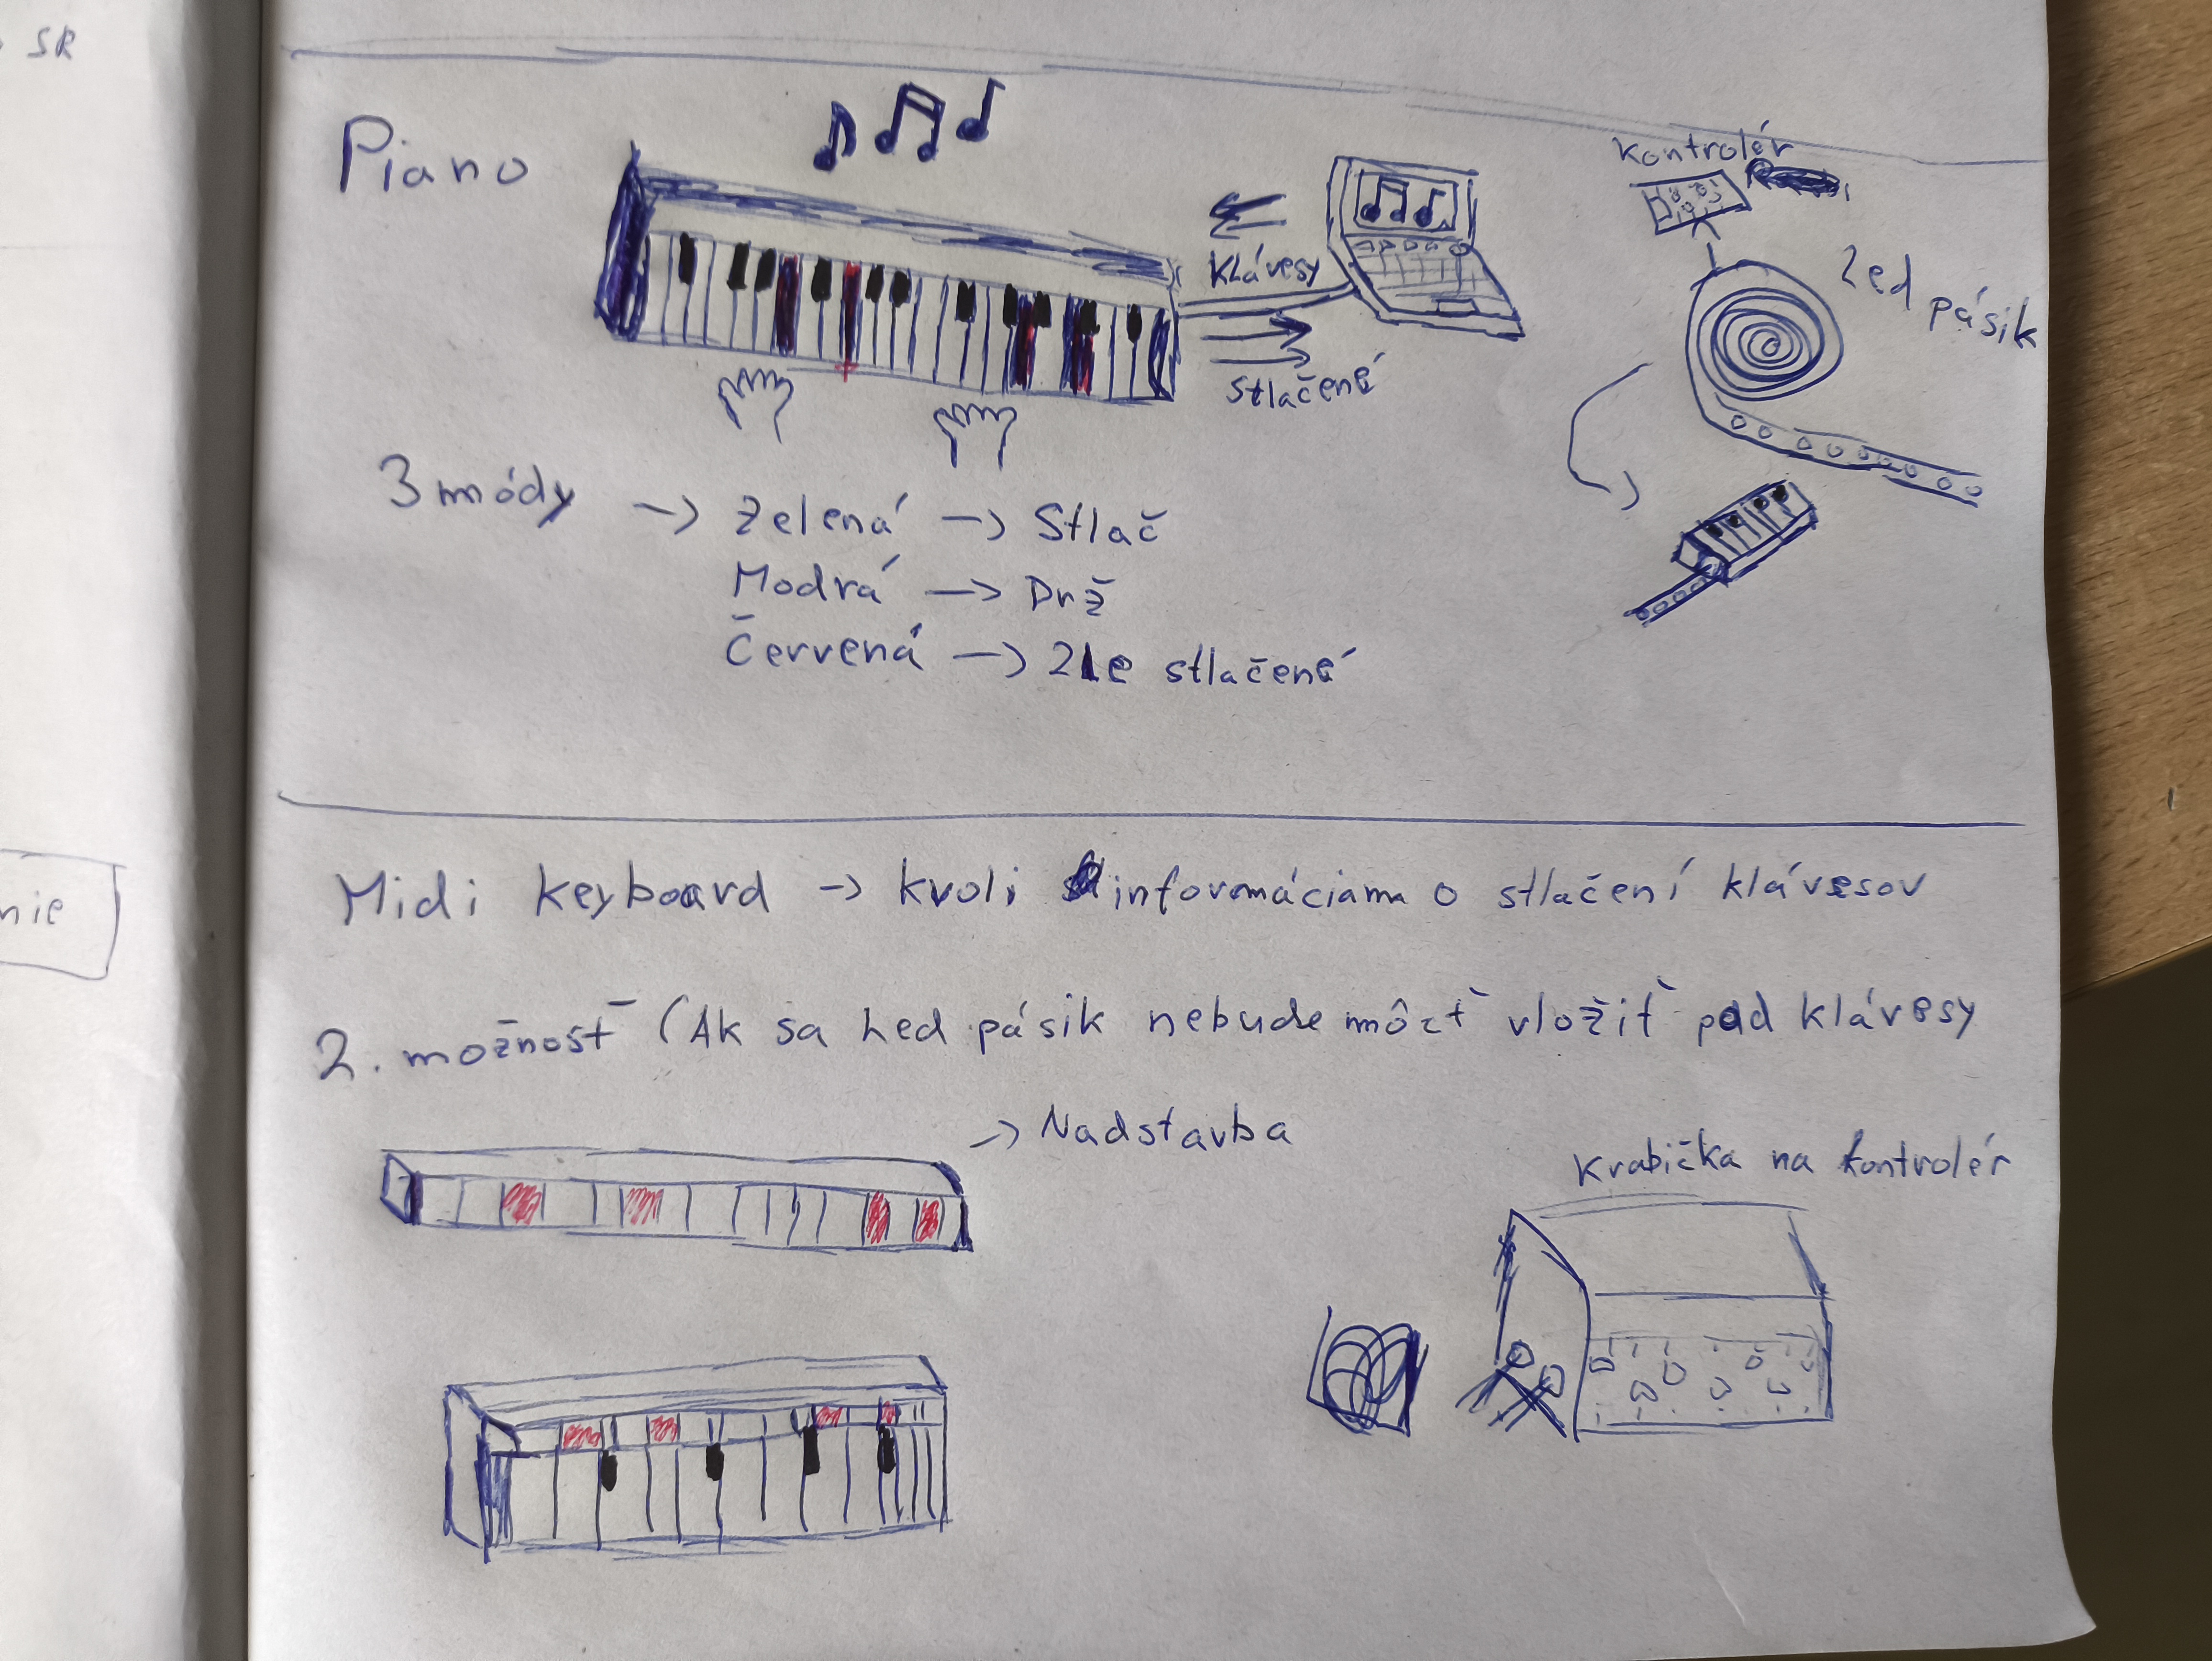 SR
Piano
Kontrolér
Led pásik
Klávesy
Stlačené
3 módy -> Zelená -> Stlač
Modrá -> Drž
Červená -> Zle stlačené
nie
Midi keyboard -> kvoli informáciam o stlačení klávesov
2. možnosť (Ak sa Led pásik nebude môcť vložiť pod klávesy
-> Nadstavba
Krabička na kontrolér